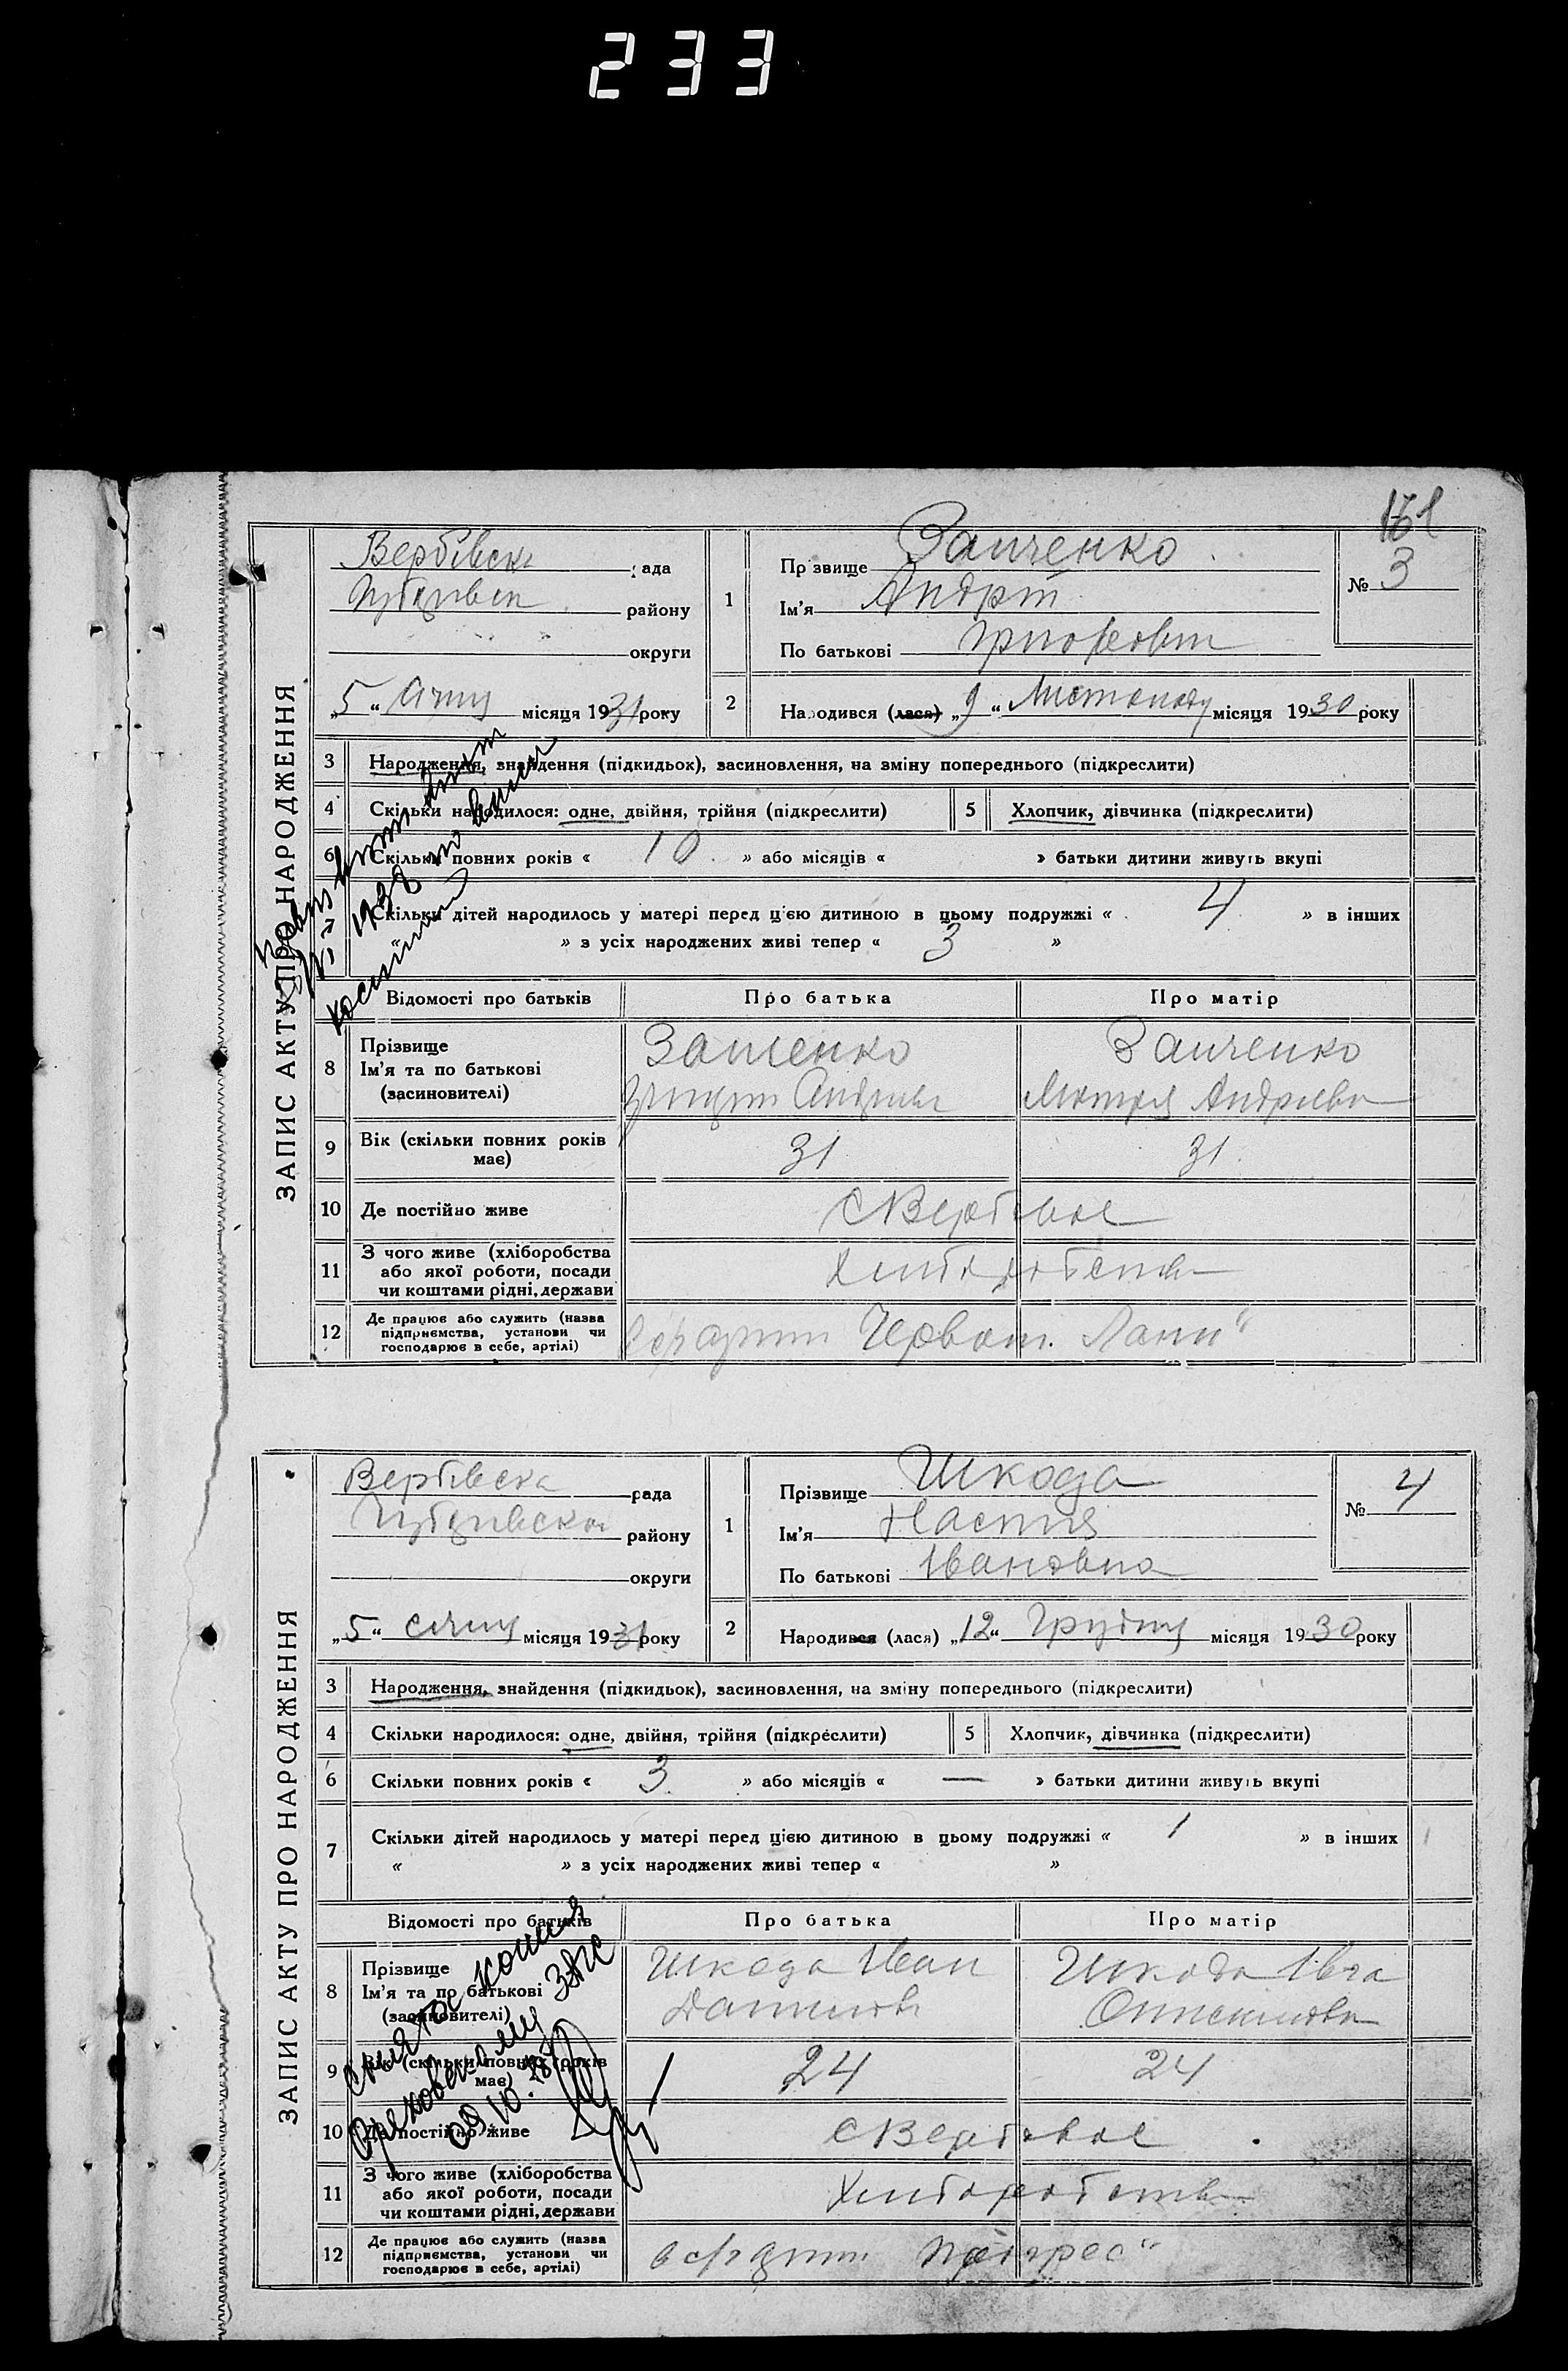 233
161
ЗАПИС АКТУ ПРО НАРОДЖЕННЯ
Вербівська рада
району
округи
1
Прізвище Заиченко
Ім'я Андрій
По батькові Григорович
№ 3
„5“ січня місяця 1931 року
2
Народився (лася) „9“ Листопаду місяця 1930 року
3 Народження, знайдення (підкидьок), засиновлення, на зміну попереднього (підкреслити)
4 Скільки народилося: одне, двійня, трійня (підкреслити) 5 Хлопчик, дівчинка (підкреслити)
6 Скільки повних років « 10 » або місяців « » батьки дитини живуть вкупі
Скільки дітей народилось у матері перед цією дитиною в цьому подружжі « 4 » в інших
« » з усіх народжених живі тепер « 3 »
1938
Відомості про батьків Про батька Про матір
8 Прізвище Ім'я та по батькові (засиновителі)
Заиченко Заиченко
Андрієвна
9 Вік (скільки повних років має) 31 31
10 Де постійно живе С Вербове
11 З чого живе (хліборобства або якої роботи, посади чи коштами рідні, держави Хліборобства
12 Де працює або служить (назва підприємства, установи чи господарює в себе, артілі) Червон. Лани“
ЗАПИС АКТУ ПРО НАРОДЖЕННЯ
Вербівська рада
району
округи
1
Прізвище Шкода
Ім'я Настя
По батькові Івановна
№ 4
„5“ січня місяця 1931 року
2
Народився (лася) „12“ Грудня місяця 1930 року
3 Народження, знайдення (підкидьок), засиновлення, на зміну попереднього (підкреслити)
4 Скільки народилося: одне, двійня, трійня (підкреслити) 5 Хлопчик, дівчинка (підкреслити)
6 Скільки повних років « 3 » або місяців « — » батьки дитини живуть вкупі
7 Скільки дітей народилось у матері перед цією дитиною в цьому подружжі « 1 » в інших
« » з усіх народжених живі тепер « »
Відомості про батьків Про батька Про матір
8 Прізвище Ім'я та по батькові (засиновителі)
Шкода Іван Шкода Івга
Данилов
9 Вік (скільки повних років має) 24 24
10 Де постійно живе С Вербове
11 З чого живе (хліборобства або якої роботи, посади чи коштами рідні, держави Хліборобства
12 Де працює або служить (назва підприємства, установи чи господарює в себе, артілі) в с/г артіли
снята копия
Ореховскому ЗАГС